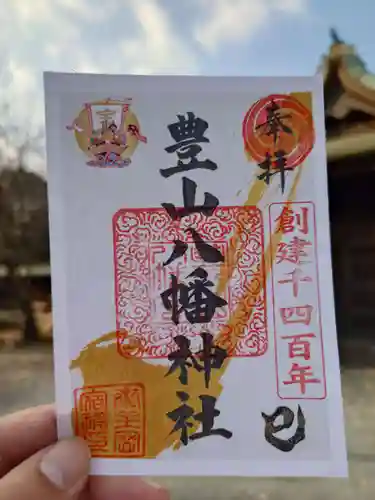 奉拝
創建千四百年
巳
豊山八幡神社
宝